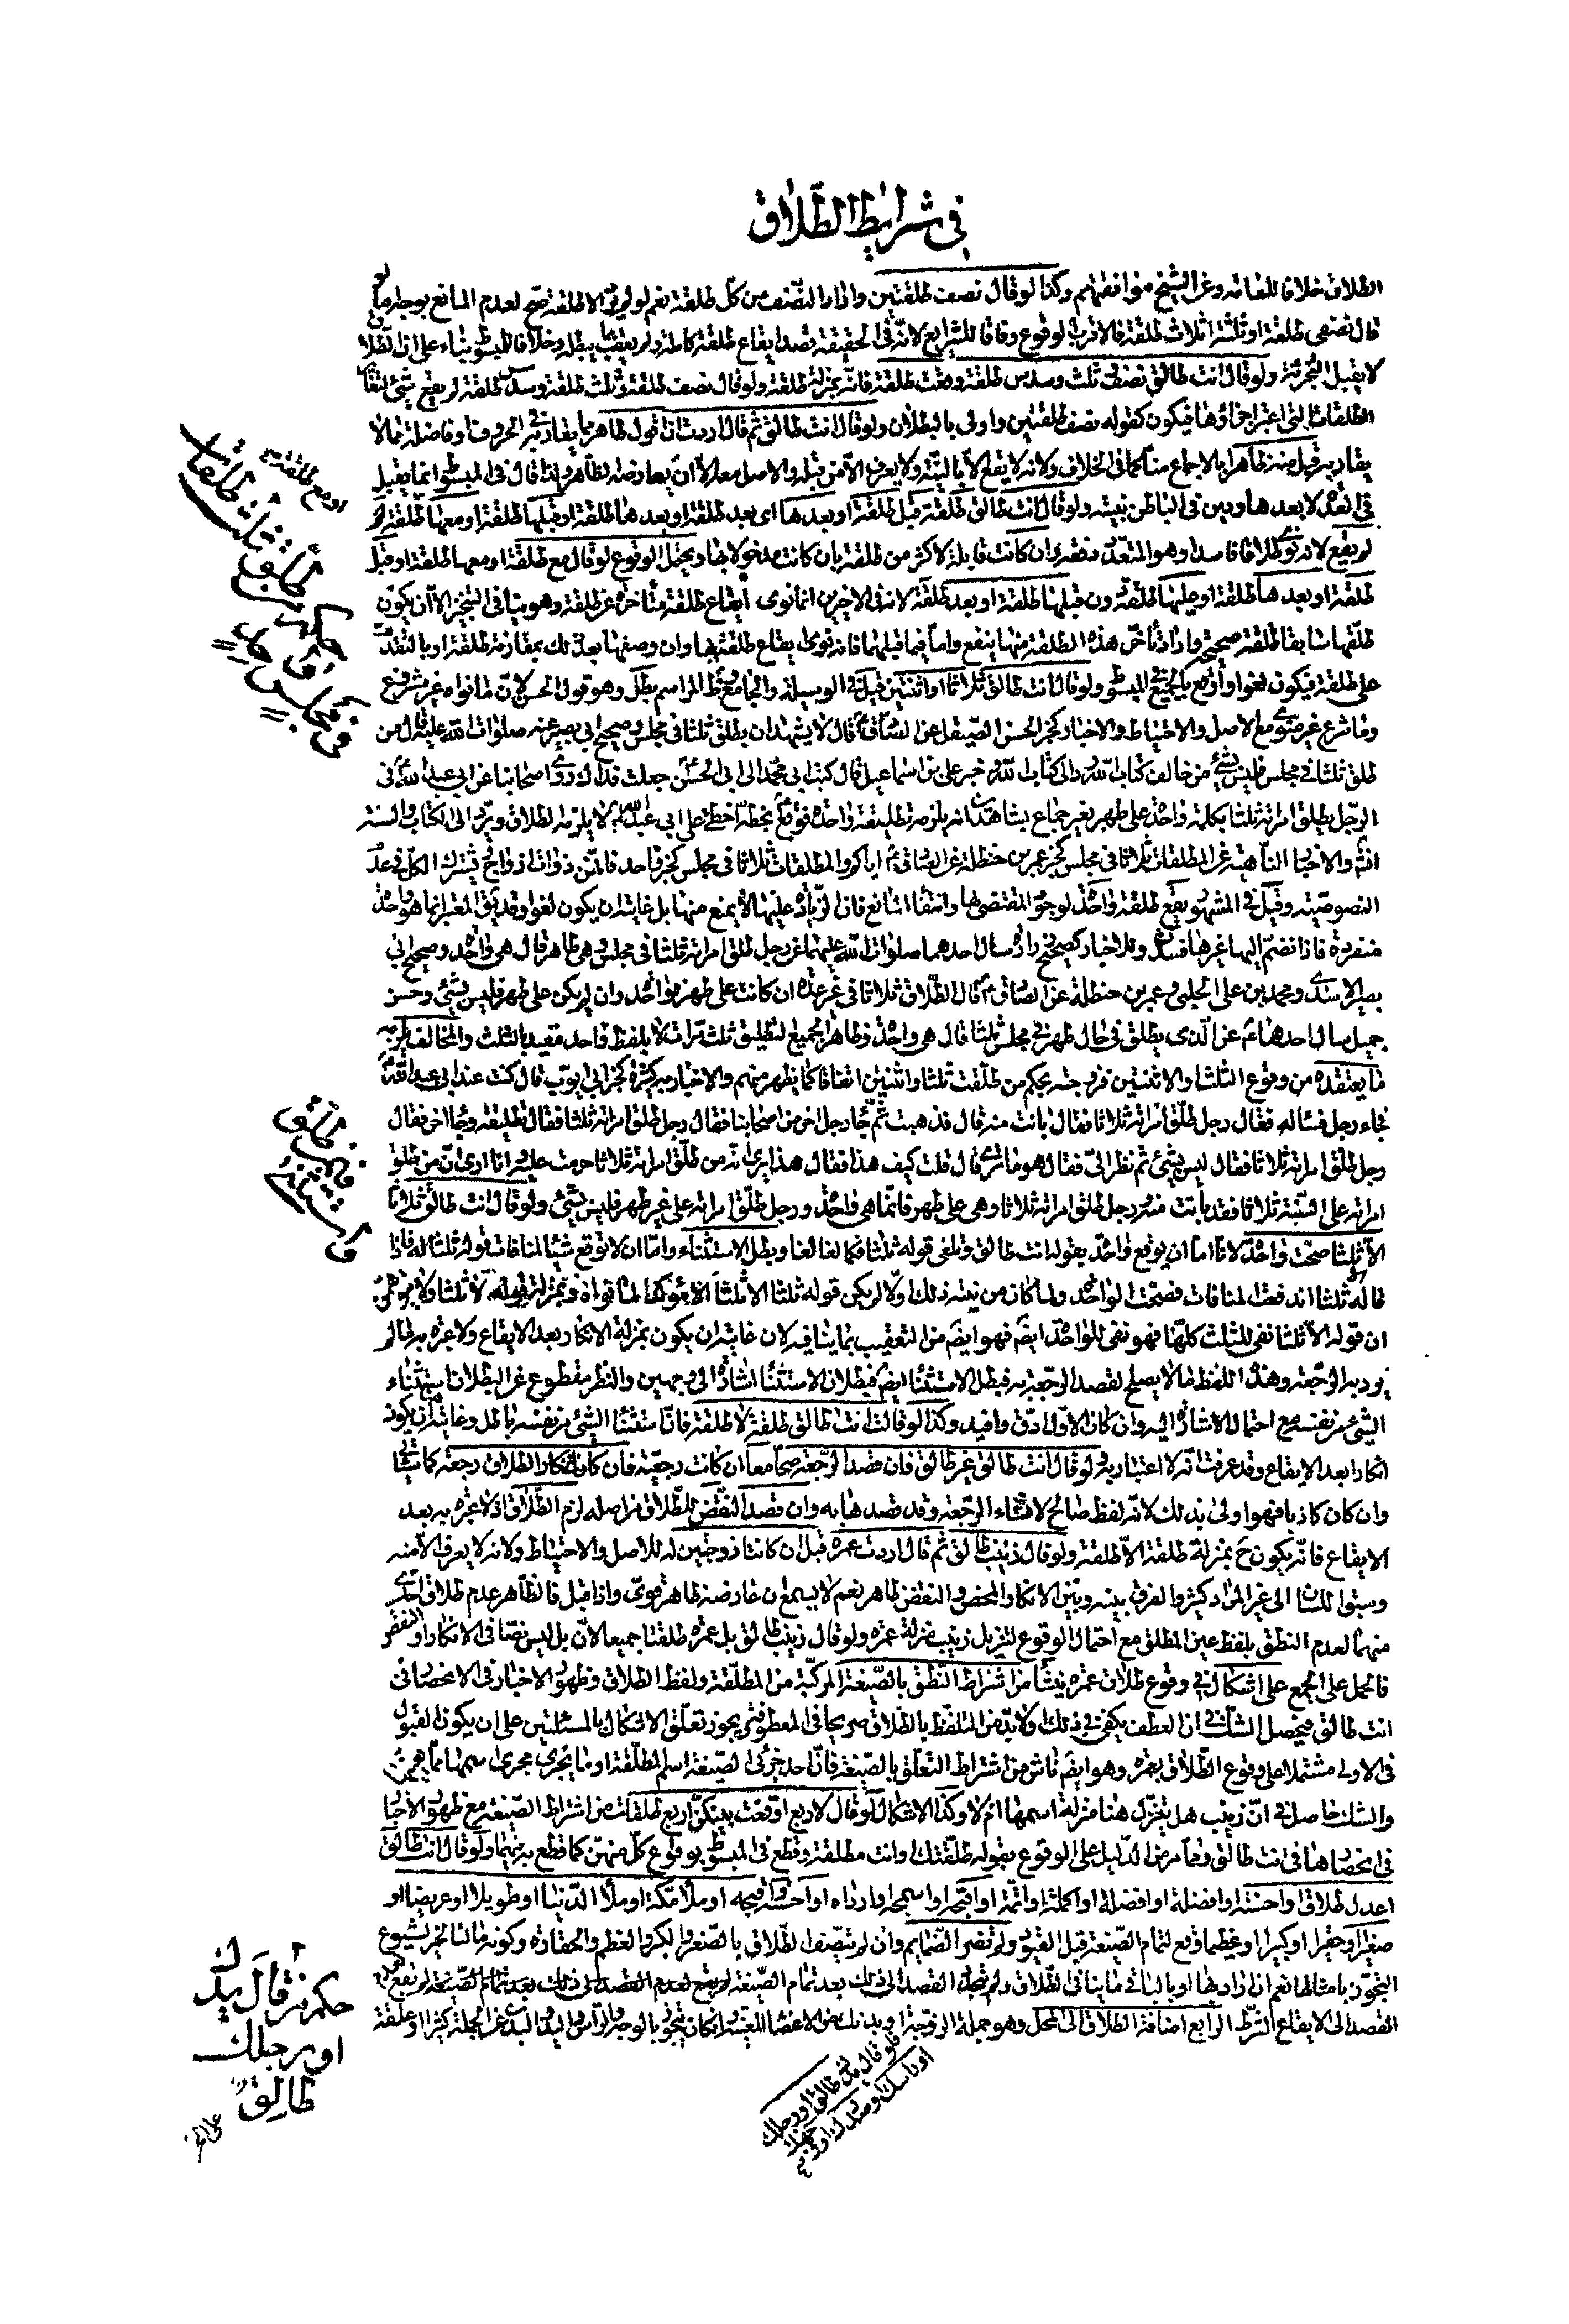 في شرايط الطلاق
الطلاق خلافا للعامة وعن الشيخ موافقتهم وكذا لو قال نصف طلقتين واذا اراد النصف من كل طلقة نعم لو لم يرد الا طلقة صح لعدم المانع بوجه اما لو
قال نصفى طلقة او ثلثة اثلاث طلقة فالاقرب الوقوع وفاقا للشرايع لانه في الحقيقة قصد ايقاع طلقة كاملة ولم يعقب بما يبطله وخلافا للمبسوط بناء على ان الطلاق
لا يقبل التجزئة ولو قال انت طالق نصف وثلث وسدس طلقة وقعت طلقة فانه بمنزلة طلقة ولو قال نصف طلقة وثلث طلقة وسدس طلقة لم يقع شئ لتغاير
الطلقات التى اعتبر اجزاؤها فيكون كقوله نصف طلقتين واولى بالبطلان ولو قال انت طالق ثم قال اردت ان اقول طاهر مما يقاربه في الحروف او فاضلة مما لا
يقاربه قبل منه ظاهرا بالاجماع منا كما في الخلاف ولانه لا يقع الا بالنية ولا يعرف الا من قبله والاصل معه الا ان يعارضه الظاهر ولذا قال في المبسوط انما يقبل
في العدة لا بعدها ودين في الباطن بنيته ولو قال انت طالق طلقة قبل طلقة او بعدها اى بعد طلقة او بعدها طلقة او قبلها طلقة او معها طلقة
لم يقع لانه نوى طلاقا فاسدا وهو المتعدد دفعة وان كانت قابلة لاكثر من طلقة بان كانت مدخولا بها ويحتمل الوقوع لو قال مع طلقة او معها طلقة او قبل
طلقة او بعدها طلقة او عليها طلقة دون قبلها طلقة او بعد طلقة لانه في الاخيرين انما نوى ايقاع طلقة متأخرة عن طلقة وهو ينافى التنجيز الا ان يكون
طلقها سابقا طلقة صحيحة واراد تأخر هذه الطلقة منها فيقع واما فيما قبلهما فانه نوى ايقاع طلقة بها وان وصفها بعد ذلك بمقارنة طلقة او بالتقدم
على طلقة فيكون لغوا واوقع الجميع في المبسوط ولو قال انت طالق ثلاثا او اثنتين قيل في الوسيلة والجامع وظ المراسم بطل وهو قول الحسن لان ما نواه غير مشروع
وما شرع غير منوى مع الاصل والاحتياط والاخبار كخبر الحسن الصيقل عن الصادق قال لا يشهد ان يطلق ثلثا في مجلس وصحيح ابى بصير عنه صلوات الله عليه قال من
طلق ثلثا في مجلس فليس بشئ من خالف كتاب الله رد الى كتاب الله وخبر على بن اسماعيل قال كتب ابى محمد الى ابى الحسن جعلت فداك روى اصحابنا عن ابى عبد الله في
الرجل يطلق امراته ثلثا بكلمة واحدة على طهر بغير جماع بشاهدين انه يلزمه تطليقة واحدة فوقع بخطه اخطئ على ابى عبد الله لا يلزمه الطلاق ويرد الى الكتاب والسنة
انش والاخبار الناهية عن المطلقات ثلاثا في مجلس كخبر عمر بن حنظلة عن الصادق اياكم والمطلقات ثلاثا في مجلس واحد فانهن ذوات ازواج يشترك الكل في عدم
النصوصية وقيل في المشهور يقع طلقة واحدة لوجود المقتضى لها وانتفاء المانع فان الزيادة عليها لا يمنع منها بل غايته ان يكون لغوا وقد يقال المعتبر انما هو واحدة
منفردة فاذا انضم اليها غيرها فسدت وللاخبار كصحيح زرارة سال احدهما صلوات الله عليهما عن رجل طلق امراته ثلثا في مجلس وهي طاهر قال هي واحدة وصحيح ابى
بصير الاسدى ومحمد بن على الحلبى وعمر بن حنظلة عن الصادق قال الطلاق ثلاثا في غير عدة ان كانت على طهر فواحدة وان لم يكن على طهر فليس بشئ وحسن
جميل سال احدهما عن الذى يطلق في حال طهر في مجلس ثلثا قال هي واحدة وظاهر الجميع التطليق ثلث مرات لا بلفظ واحد مقيد بالثلث والمخالف يلزم به
ما يعتقده من وقوع الثلث او الاثنتين فزوجته بحكم من طلقت ثلثا او اثنتين اتفاقا كما يظهر منهم والاخبار به كثيرة كخبر ابى ايوب قال كنت عند ابى عبد الله
فجاء رجل فسئاله فقال رجل طلق امراته ثلاثا فقال بانت منه قال فذهبت ثم جاء رجل اخر من اصحابنا فقال رجل طلق امراته ثلثا فقال تطليقة وجاء اخر فقال
رجل طلق امراته ثلاثا فقال ليس بشئ ثم نظر الى فقال هو ما ترى قال قلت كيف هذا فقال هذا يرى ان من طلق امراته ثلاثا حرمت عليه وانا ارى ان من طلق
امراته على السنة ثلاثا فقد بانت منه ورجل طلق امراته ثلاثا وهي على طهر فانما هي واحدة ورجل طلق امراته على غير طهر فليس بشئ ولو قال انت طالق ثلاثا
الا ثلثا صحت واحدة لانه اما ان يوقع واحدة بقوله انت طالق وتلغى قوله ثلثا فكما لغا لغا وبطل الاستثناء واما ان لا توقع شيئا لمنافات قوله ثلثا له فاذا
قال الا ثلثا اندفعت المنافات فصحت الواحدة ولما كان من نيته ذلك اولا لم يكن قوله ثلثا الا ثلثا الا مؤكدا لما نواه وبمنزلة قوله لا ثلثا ولا يتوهم
ان قوله الا ثلثا نفى للثلث كلها فهو نفى للواحدة ايضم فهو ايضم من التعقيب بما ينافيه لان غايته ان يكون بمنزلة الانكار بعد الايقاع ولا عبرة به ما لم
يرد به الرجعة وهذا اللفظ مما لا يصلح لقصد الرجعة به فبطل الاستثناء ايضم فبطلان الاستثناء اشارة الى وجهين والنظر مقطوع عن البطلان استثناء
الشئ من نفسه مع احتمال الاشارة اليه وان كان الاول ادق وافيد وكذا لو قال انت طالق طلقة الا طلقة فان استثناء الشئ من نفسه باطل وغايته ان يكون
انكارا بعد الايقاع وقد عرفت انه لا اعتبار به ولو قال انت طالق غير طالق فان قصد الرجعة صحا معا ان كانت رجعية فان كان انكار الطلاق رجعة كما سيجئ
وان كان كاذبا فهو اولى بذلك لانه لفظ صالح لانشاء الرجعة وقد قصدها به وان قصد النقض للطلاق من اصله لزم الطلاق اذ لا عبرة به بعد
الايقاع فانه يكون ح بمنزلة طلقة الا طلقة ولو قال زينب طالق ثم قال اردت عمرة قبل ان كانتا زوجتين له للاصل والاحتياط ولانه لا يعرف الا منه
وسبق اللسان الى غير المراد كثير والفرق بينه وبين الانكار المحض والنقض ظاهر نعم لا يسمع ان عارضه ظاهر قوى واذا قبل فالظاهر عدم طلاق احدى
منهما لعدم النطق بلفظ عين المطلق مع احتمال الوقوع لتنزيل زينب منزلة عمرة ولو قال زينب طالق بل عمرة طلقتا جميعا لان بل ليس نصا في الانكار او النقض
فالحمل على الجمع على اشكال في وقوع طلاق عمرة ينشأ من اشتراط النطق بالصيغة المركبة من المطلقة ولفظ الطلاق وظهور الاخبار في الانحصار في
انت طالق فيحصل الشك في ان العطف يكفي في ذلك او لابد من التلفظ بالطلاق صريحا في المعطوف ثم يجوز تعلق الاشكال بالمسئلتين على ان يكون القبول
في الاولى مشتملا على وقوع الطلاق بعمرة وهو ايضم ناش من اشتراط التعلق بالصيغة فان احد جزئى الصيغة اسم المطلقة او ما يجرى مجرى اسمها مما يعينها
والشك حاصل في ان زينب هل يتنزل هنا منزلة اسمها ام لا وكذا الاشكال لو قال لاربع اوقعت بينكن اربع طلقات من اشتراط الصيغة مع ظهور الاخبار
في انحصارها في انت طالق وما مر من الدليل على الوقوع بقوله طلقتك وانت مطلقة وقطع في المبسوط بوقوع كل منهن كما قطع به فيهما ولو قال انت طالق
اعدل طلاق او احسنه او افضله او اكمله او اتمه او اقبحه او اسمجه او ارداه او احسنه واقبحه او ملأ مكة او ملأ الدنيا او طويلا او عريضا او
صغيرا او حقيرا او كبيرا او عظيما وقع لتمام الصيغة قبل القيود ولم تضر الضمايم وان لم يتصف الطلاق بالصغر والكبر والعظم والحقارة وكونه مالئا لخبر بشيوع
التجوز بامثالها نعم ان اراد بها او بالباقى ما ينافى الطلاق ولم يتجدد القصد الى ذلك بعد تمام الصيغة لم يقع لعدم
القصد الى الايقاع الشرط الرابع اضافة الطلاق الى المحل وهو جملة الزوجة
فلو قال يدك طالق او رجلك
او راسك او صدرك او وجهك
او مع طلقة
طالق ثلث طلقات
حكم من قال
في مجلس واحد
طالق
حكم من قال يدك
او رجلك
طالق